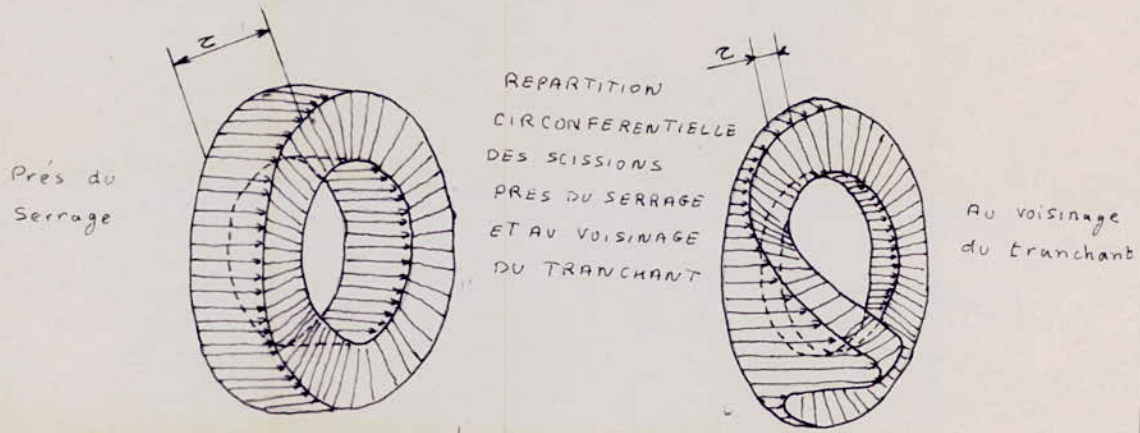 τ
Prés du
Serrage
REPARTITION
CIRCONFERENTIELLE
DES SCISSIONS
PRES DU SERRAGE
ET AU VOISINAGE
DU TRANCHANT
τ
Au voisinage
du tranchant